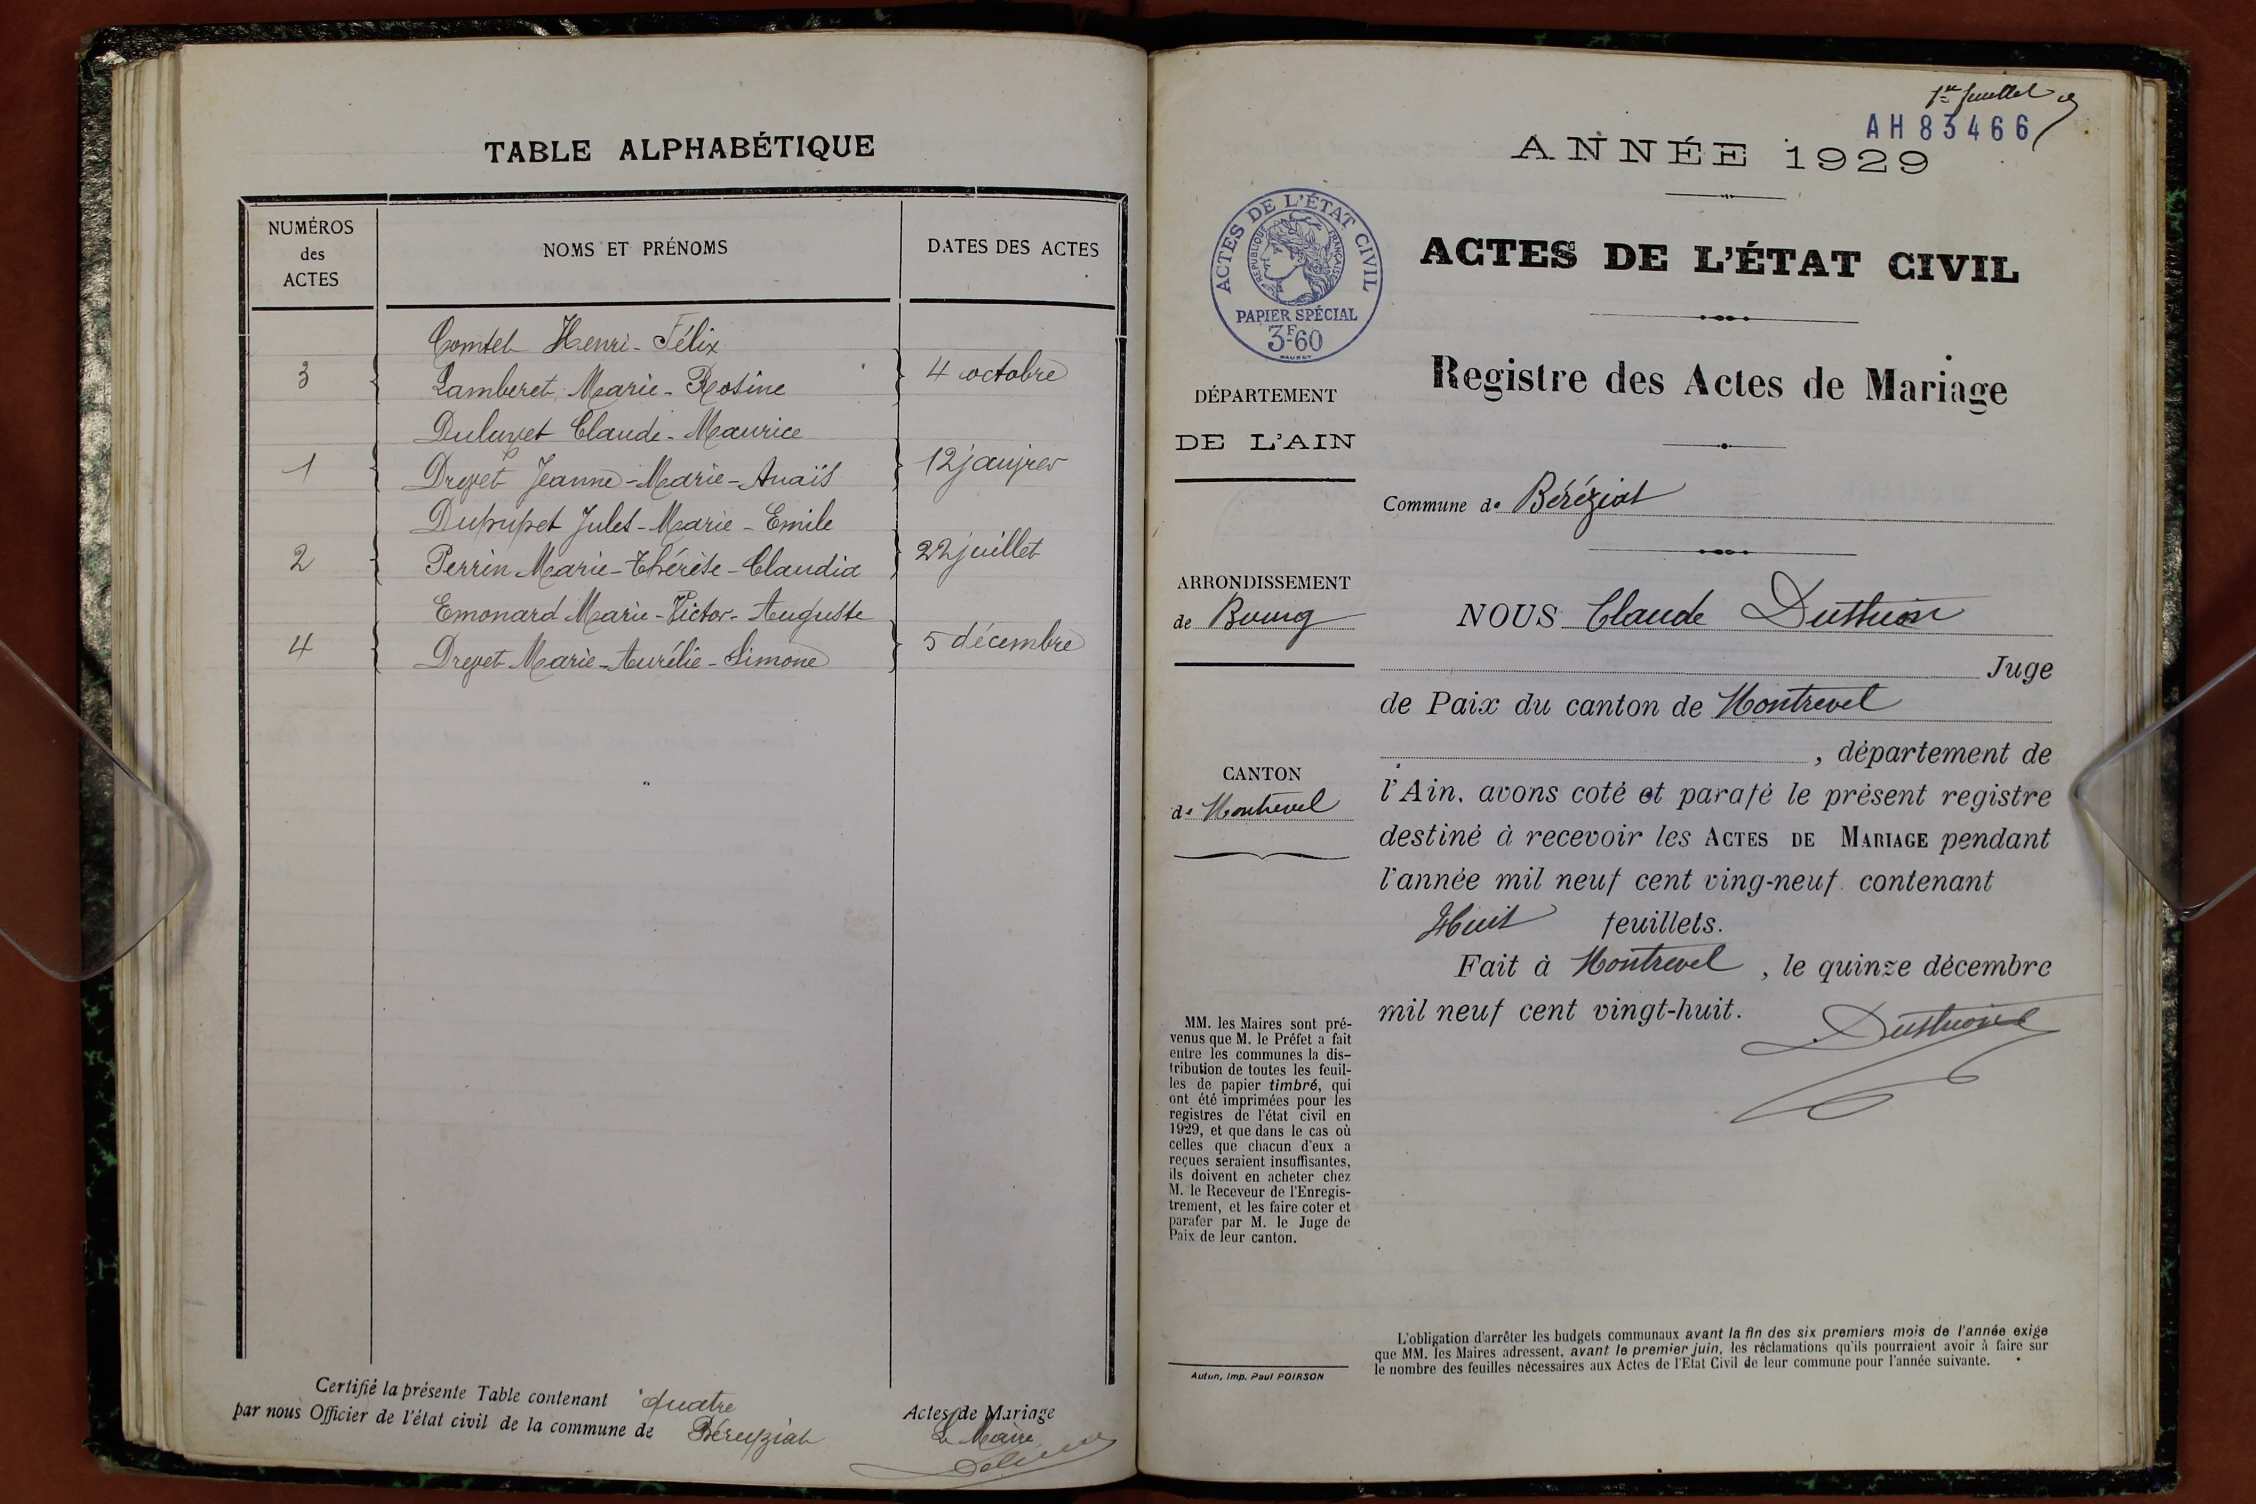 TABLE ALPHABÉTIQUE
NUMÉROS
des
ACTES
NOMS ET PRÉNOMS
DATES DES ACTES
Comtet Henri-Félix
3
Lamberet Marie-Rosine
4 octobre
Claude-Maurice
1
Drevet Jeanne-Marie-Anaïs
12 janvier
Dupupet Jules-Marie-Emile
2
Perrin Marie-Thérèse-Claudia
22 juillet
Emonard Marie-Victor-Auguste
4
Drevet Marie-Aurélie-Simone
5 décembre
Certifié la présente Table contenant quatre Actes de Mariage
par nous Officier de l'état civil de la commune de Béréyziat
Le Maire
1er feuillet
AH 83466
ANNÉE 1929
ACTES DE L'ÉTAT CIVIL
RÉPUBLIQUE FRANÇAISE
PAPIER SPÉCIAL
3F60
ACTES DE L'ÉTAT CIVIL
Registre des Actes de Mariage
DÉPARTEMENT
DE L'AIN
Commune de Béréziat
ARRONDISSEMENT
de Bourg
CANTON
de Montrevel
NOUS Claude Duthion
Juge
de Paix du canton de Montrevel
, département de
l'Ain, avons coté et parafé le présent registre
destiné à recevoir les ACTES DE MARIAGE pendant
l'année mil neuf cent ving-neuf contenant
Huit feuillets.
Fait à Montrevel, le quinze décembre
mil neuf cent vingt-huit.
Duthion
MM. les Maires sont pré-
venus que M. le Préfet a fait
entre les communes la dis-
tribution de toutes les feuil-
les de papier timbré, qui
ont été imprimées pour les
registres de l'état civil en
1929, et que dans le cas où
celles que chacun d'eux a
reçues seraient insuffisantes,
ils doivent en acheter chez
M. le Receveur de l'Enregis-
trement, et les faire coter et
parafer par M. le Juge de
Paix de leur canton.
Autun, Imp. Paul POIRSON
L'obligation d'arrêter les budgets communaux avant la fin des six premiers mois de l'année exige
que MM. les Maires adressent, avant le premier juin, les réclamations qu'ils pourraient avoir à faire sur
le nombre des feuilles nécessaires aux Actes de l'Etat Civil de leur commune pour l'année suivante.